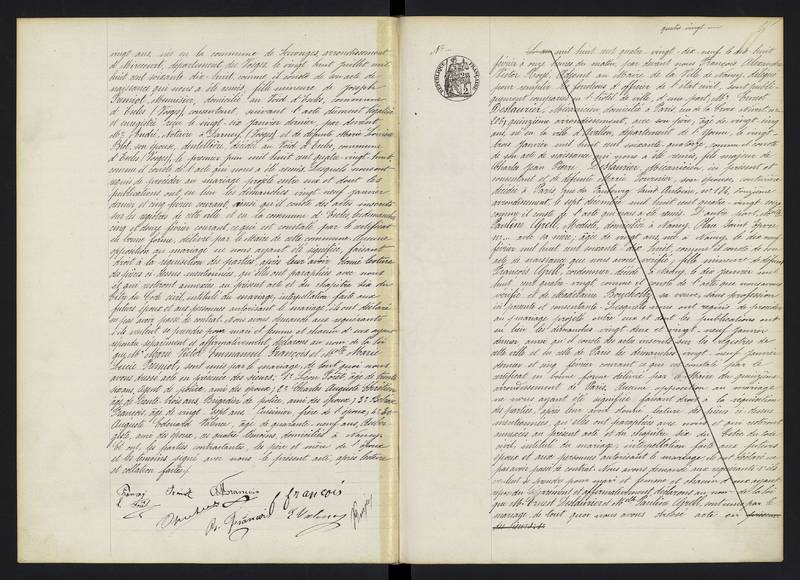 vingt ans, née en la commune de
de Mirecourt, département des Vosges, le vingt huit juillet mil
huit cent soixante dix huit, comme il conste de son acte de
naissance qui nous a été remis, fille mineure de Joseph
domicilié au Void d'Escles, commune
d'Escles (Vosges), consentant, suivant l'acte
et enregistré reçu le vingt six janvier dernier, par devant
Me notaire à Darney (Vosges) et de défunte Marie
son épouse, décédée au Void d'Escles, commune
d'Escles (Vosges), le premier juin mil huit cent quatre-vingt huit,
comme il conste de l'acte qui nous a été remis. Lesquels nous ont
requis de procéder au mariage projeté entre eux et dont les
publications ont eu lieu les dimanches vingt neuf janvier
dernier et cinq février courant ainsi qu'il conste des actes inscrits
sur les registres de cette ville et en la commune d'Escles, les dimanches
cinq et douze février courant, ce qui est constaté par le certificat
en bonne forme, délivré par le Maire de cette commune. Aucune
opposition au mariage ne nous ayant été signifiée, faisant
droit à la réquisition des parties, après leur avoir donné lecture
des pièces ci-dessus mentionnées, qu'elles ont paraphées avec nous
et qui resteront annexées au présent acte et du chapitre six du
titre du Code civil, intitulé du mariage, interpellation faite aux
futurs époux et aux personnes autorisant le mariage, ils ont déclaré
ne pas avoir passé de contrat. Nous avons demandé aux requérants
s'ils veulent se prendre pour mari et femme et chacun d'eux ayant
répondu séparément et affirmativement déclarons au nom de la loi
que Mr Marie Victor Emmanuel François et Melle Marie
Lucie sont unis par le mariage, de tout quoi nous
avons dressé acte en présence des sieurs: 1° Léon âgé de trente
ans, agent de police, ami des époux; 2° Charles Auguste
âgé de trente trois ans, Brigadier de police, ami des époux; 3°
François, âgé de vingt-sept ans, cuisinier, frère de l'époux; 4°
Auguste Edouard Valence, âgé de quarante neuf ans,
ami des époux, ces quatre témoins, domiciliés à Nancy
Et ont, les parties contractantes, les père et mère de l'époux
et les témoins signé avec nous le présent acte, après lecture
et collation faites.
François
quatre-vingt-un
N°
L'an mil huit cent quatre-vingt-dix-neuf, le dix huit
février à onze heures du matin, par devant nous François Alexandre
Victor adjoint au Maire de la Ville de Nancy, délégué
pour remplir les fonctions d'officier de l'état civil, sont publi-
quement comparus en l'hôtel de ville, d'une part Mr Ernest
Deslauriers, mécanicien, domicilié à Paris, rue
quinzième arrondissement, avec son père, âgé de vingt cinq
ans, né en la ville d'Avallon, département de l'Yonne, le vingt-
trois janvier mil huit cent soixante quatorze, comme il conste
de son acte de naissance qui nous a été remis, fils majeur de
Charles Jean Pierre Deslauriers, mécanicien, ici présent et
consentant et de défunte Marie son épouse, couturière
décédée à Paris, rue du Faubourg Saint Antoine, onzième
arrondissement, le sept décembre mil huit cent quatre-vingt-onze
comme il conste de l'acte qui nous a été remis. D'autre part, Melle
Pauline Grell, modiste, domiciliée à Nancy, Place Saint Epvre
avec sa mère, âgée de vingt ans, née à Nancy, le dix neuf
février mil huit cent soixante dix huit, comme il conste de son
acte de naissance que nous avons vérifié, fille mineure de défunt
François Grell, cordonnier, décédé à Nancy, le dix janvier mil
huit cent quatre-vingt comme il conste de l'acte que nous avons
vérifié et de Madeleine sa veuve, sans profession
ici présente et consentante. Lesquels nous ont requis de procéder
au mariage projeté entre eux et dont les publications ont
eu lieu les dimanches vingt deux et vingt-neuf janvier
dernier ainsi qu'il conste des actes inscrits sur les registres de
cette ville et en la ville de Paris les dimanches vingt-neuf janvier
dernier et cinq février courant ce qui est constaté par le
certificat en bonne forme délivré par le Maire du quinzième
arrondissement de Paris. Aucune opposition au mariage
ne nous ayant été signifiée faisant droit à la réquisition
des parties, après leur avoir donné lecture des pièces ci-dessus
mentionnées, qu'elles ont paraphées avec nous et qui resteront
annexées au présent acte et du chapitre six du titre du Code
civil, intitulé du mariage, interpellation faite aux futurs
époux et aux personnes autorisant le mariage, ils ont déclaré ne
pas avoir passé de contrat. Nous avons demandé aux requérants s'ils
veulent se prendre pour mari et femme et chacun d'eux ayant
répondu séparément et affirmativement déclarons au nom de la loi
que Mr Ernest Deslauriers et Melle Pauline Grell, sont unis par le
mariage, de tout quoi nous avons dressé acte en présence
des sieurs: 1°